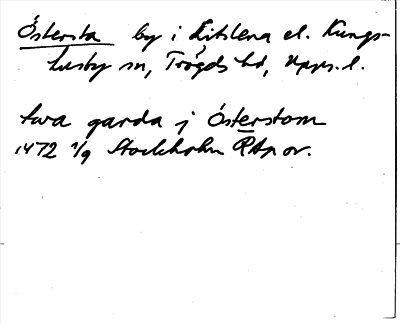 Östersta by i Litslena el. Kungs-
husby sn, Trögds hd, Upps. l.
twa garda j Österstom
1472 1/9 Stockholm RAp or.